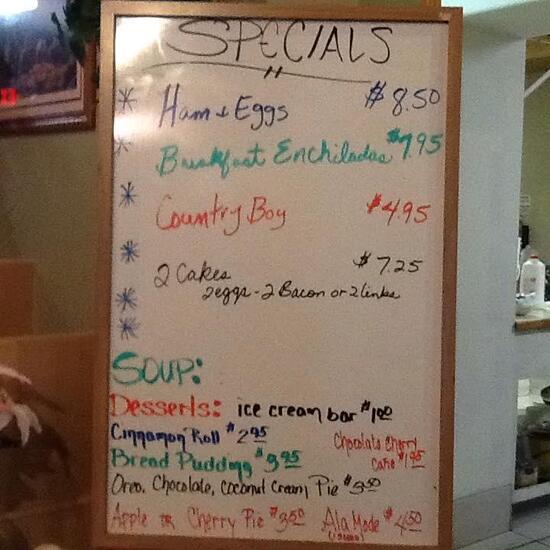 SPECIALS
Ham & Eggs $8.50
Breakfast Enchiladas $7.95
Country Boy $4.95
2 Cakes $7.25
2eggs - 2 Bacon or 2 links
SOUP:
Desserts: ice cream bar $1.00
Cinnamon Roll $2.95
Chocolate Cherry
Bread Pudding $3.95
Cake $1.95
Oreo, Chocolate, Coconut Cream Pie $3.50
Apple or Cherry Pie $3.50 Ala Mode $4.50